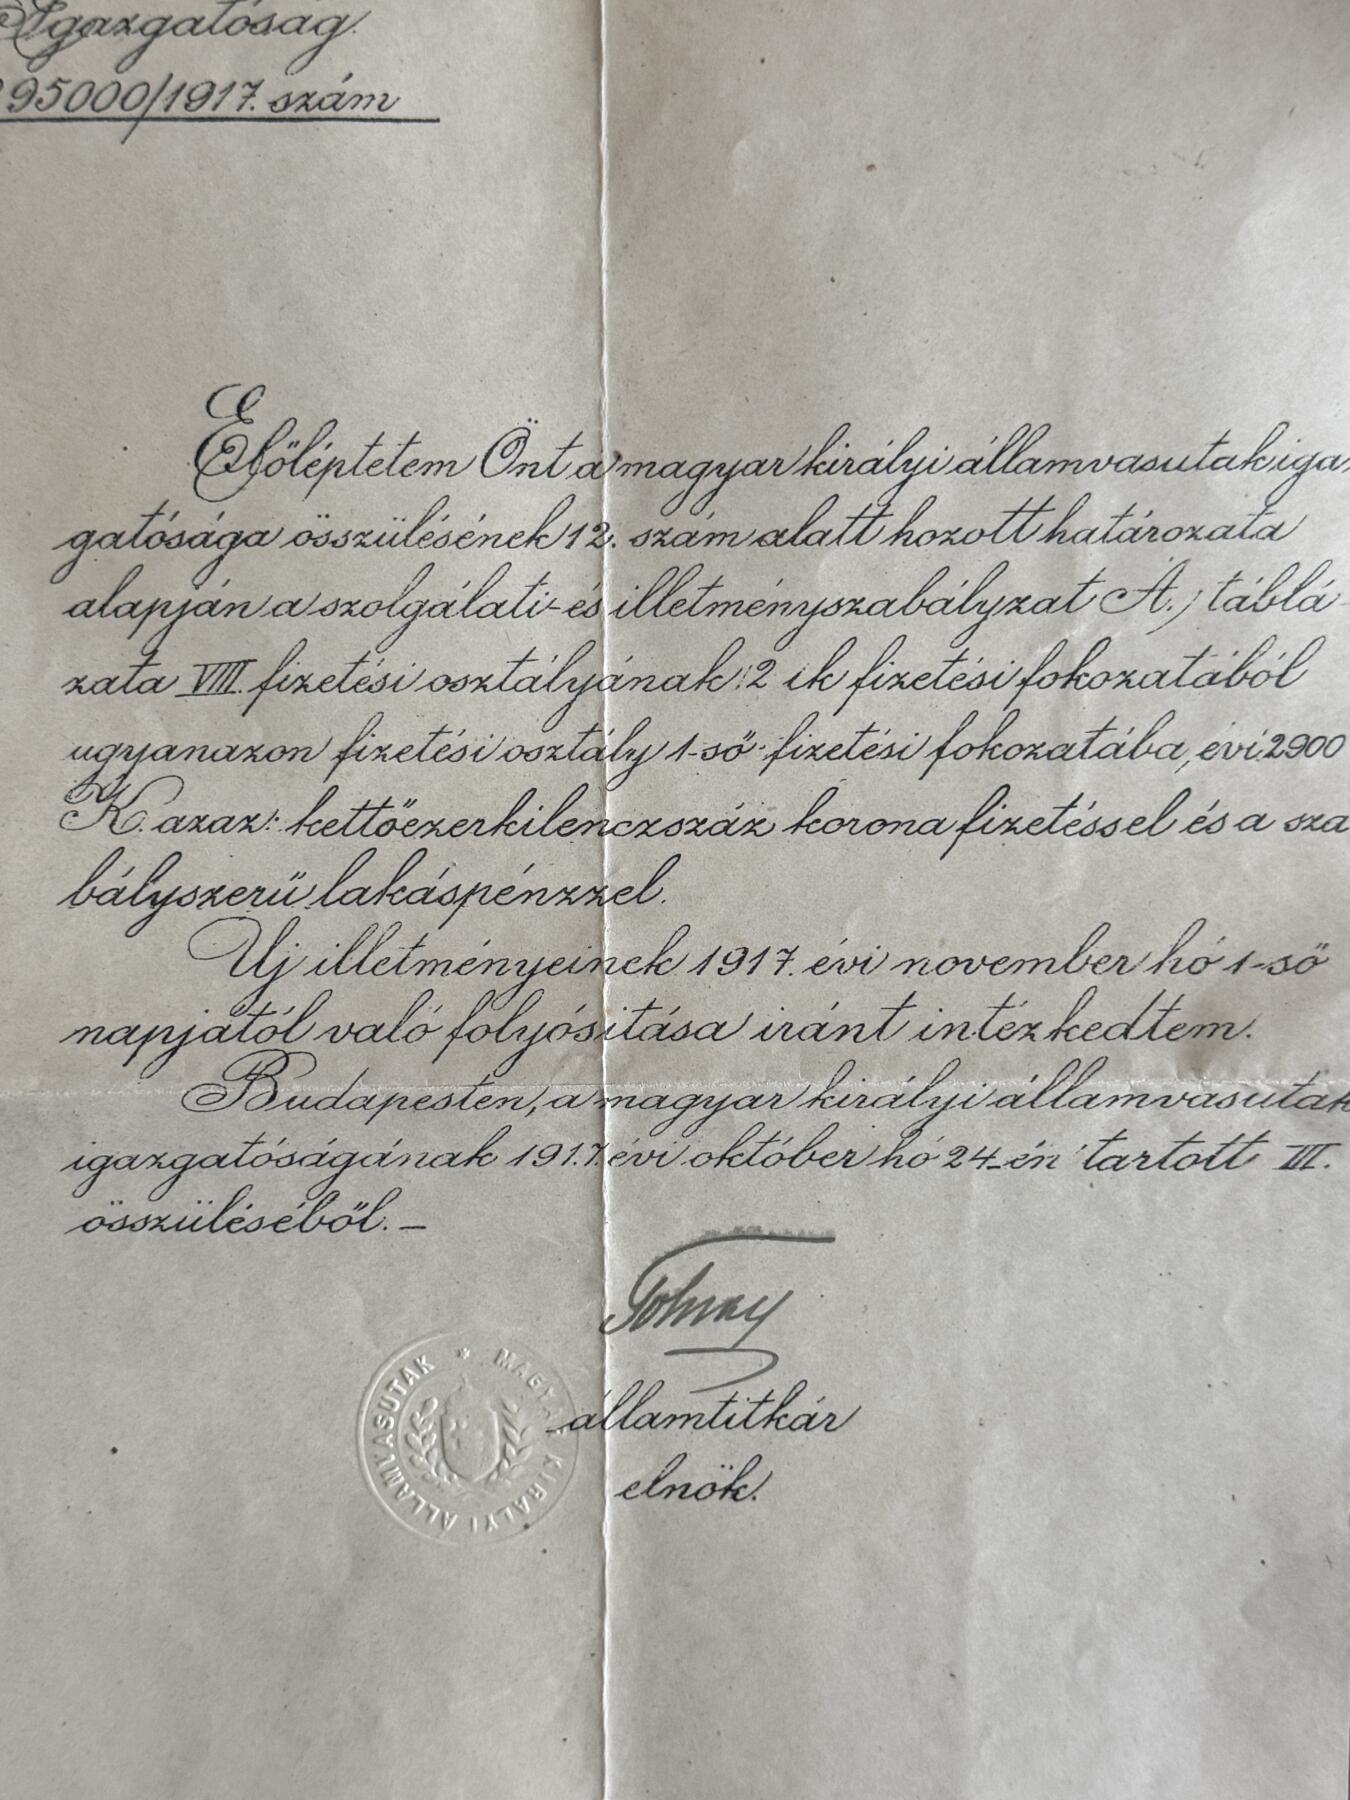 Igazgatóság.
95000/1917. szám
Előléptetem Önt a magyar királyi államvasutak igaz
gatósága összülésének 12. szám alatt hozott határozata
alapján a szolgálati- és illetményszabályzat A.) táblá-
zata VIII. fizetési osztályának 2 ik fizetési fokozatából
ugyanazon fizetési osztály 1-ső fizetési fokozatába, évi 2900
K. azaz: kettőezerkilenczszáz korona fizetéssel és a sza
bályszerű lakáspénzzel.
Uj illetményeinek 1917. évi november hó 1-ső
napjától való folyósitása iránt intézkedtem.
Budapesten, a magyar királyi államvasutak
igazgatóságának 1917. évi október hó 24-én tartott III.
összüléséből. –
Tolnay
államtitkár
elnök.
* MAGYAR KIRÁLYI ÁLLAMVASUTAK